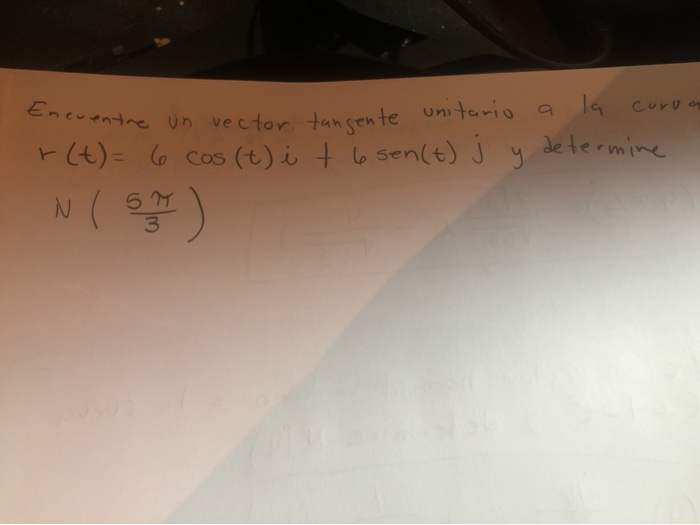 Encuentre un vector tangente unitario a la curva
r(t) = 6 cos(t) i + 6 sen(t) j y determine
N ( 5π/3 )